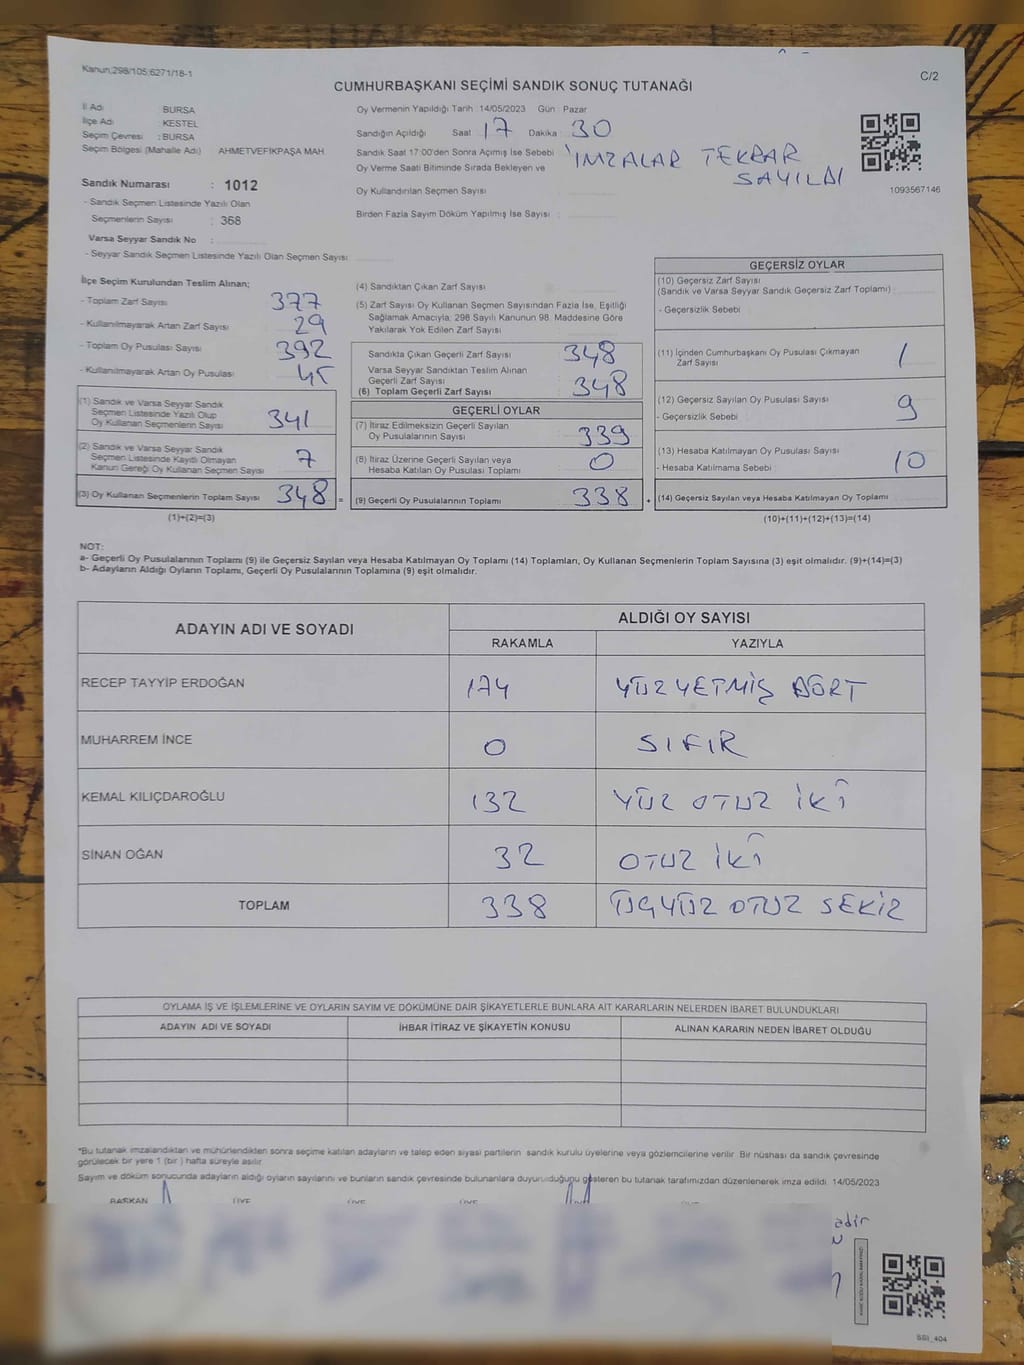 Kanun;298/105;6271/18-1
C/2
CUMHURBAŞKANI SEÇİMİ SANDIK SONUÇ TUTANAĞI
İl Adı BURSA
İlçe Adı KESTEL
Seçim Çevresi : BURSA
Seçim Bölgesi (Mahalle Adı) AHMETVEFİKPAŞA MAH.
Sandık Numarası : 1012
- Sandık Seçmen Listesinde Yazılı Olan
Seçmenlerin Sayısı : 368
Varsa Seyyar Sandık No :
- Seyyar Sandık Seçmen Listesinde Yazılı Olan Seçmen Sayısı:
Oy Vermenin Yapıldığı Tarih 14/05/2023 Gün : Pazar
Sandığın Açıldığı Saat 17 Dakika : 30
Sandık Saat 17:00'den Sonra Açımış İse Sebebi İMZALAR TEKRAR
Oy Verme Saati Bitiminde Sırada Bekleyen ve SAYILDI
Oy Kullandırılan Seçmen Sayısı
Birden Fazla Sayım Döküm Yapılmış İse Sayısı :
1093567146
İlçe Seçim Kurulundan Teslim Alınan;
- Toplam Zarf Sayısı 377
- Kullanılmayarak Artan Zarf Sayısı 29
- Toplam Oy Pusulası Sayısı 392
- Kullanılmayarak Artan Oy Pusulası 45
(1) Sandık ve Varsa Seyyar Sandık
Seçmen Listesinde Yazılı Olup
Oy Kullanan Seçmenlerin Sayısı 341
(2) Sandık ve Varsa Seyyar Sandık
Seçmen Listesinde Kayıtlı Olmayan
Kanun Gereği Oy Kullanan Seçmen Sayısı 7
(3) Oy Kullanan Seçmenlerin Toplam Sayısı 348 =
(1)+(2)=(3)
(4) Sandıktan Çıkan Zarf Sayısı :
(5) Zarf Sayısı Oy Kullanan Seçmen Sayısından Fazla İse, Eşitliği
Sağlamak Amacıyla; 298 Sayılı Kanunun 98. Maddesine Göre
Yakılarak Yok Edilen Zarf Sayısı :
Sandıkta Çıkan Geçerli Zarf Sayısı 348
Varsa Seyyar Sandıktan Teslim Alınan
Geçerli Zarf Sayısı
(6) Toplam Geçerli Zarf Sayısı 348
GEÇERLİ OYLAR
(7) İtiraz Edilmeksizin Geçerli Sayılan
Oy Pusulalarının Sayısı 339
(8) İtiraz Üzerine Geçerli Sayılan veya
Hesaba Katılan Oy Pusulası Toplamı 0
(9) Geçerli Oy Pusulalarının Toplamı 338 +
GEÇERSİZ OYLAR
(10) Geçersiz Zarf Sayısı
(Sandık ve Varsa Seyyar Sandık Geçersiz Zarf Toplamı)
- Geçersizlik Sebebi :
(11) İçinden Cumhurbaşkanı Oy Pusulası Çıkmayan
Zarf Sayısı 1
(12) Geçersiz Sayılan Oy Pusulası Sayısı 9
- Geçersizlik Sebebi
(13) Hesaba Katılmayan Oy Pusulası Sayısı 10
- Hesaba Katılmama Sebebi
(14) Geçersiz Sayılan veya Hesaba Katılmayan Oy Toplamı
(10)+(11)+(12)+(13)=(14)
NOT:
a- Geçerli Oy Pusulalarının Toplamı (9) ile Geçersiz Sayılan veya Hesaba Katılmayan Oy Toplamı (14) Toplamları, Oy Kullanan Seçmenlerin Toplam Sayısına (3) eşit olmalıdır. (9)+(14)=(3)
b- Adayların Aldığı Oyların Toplamı, Geçerli Oy Pusulalarının Toplamına (9) eşit olmalıdır.
ADAYIN ADI VE SOYADI
ALDIĞI OY SAYISI
RAKAMLA YAZIYLA
RECEP TAYYİP ERDOĞAN 174 YÜZ YETMİŞ DÖRT
MUHARREM İNCE 0 SIFIR
KEMAL KILIÇDAROĞLU 132 YÜZ OTUZ İKİ
SİNAN OĞAN 32 OTUZ İKİ
TOPLAM 338 ÜÇYÜZ OTUZ SEKİZ
OYLAMA İŞ VE İŞLEMLERİNE VE OYLARIN SAYIM VE DÖKÜMÜNE DAİR ŞİKAYETLERLE BUNLARA AİT KARARLARIN NELERDEN İBARET BULUNDUKLARI
ADAYIN ADI VE SOYADI İHBAR İTİRAZ VE ŞİKAYETİN KONUSU ALINAN KARARIN NEDEN İBARET OLDUĞU
*Bu tutanak imzalandıktan ve mühürlendikten sonra seçime katılan adayların ve talep eden siyasi partilerin sandık kurulu üyelerine veya gözlemcilerine verilir. Bir nüshası da sandık çevresinde
görülecek bir yere 1 (bir ) hafta süreyle asılır.
Sayım ve döküm sonucunda adayların aldığı oyların sayılarını ve bunların sandık çevresinde bulunanlara duyurulduğunu gösteren bu tutanak tarafımızdan düzenlenerek imza edildi. 14/05/2023
BAŞKAN ÜYE ÜYE ÜYE